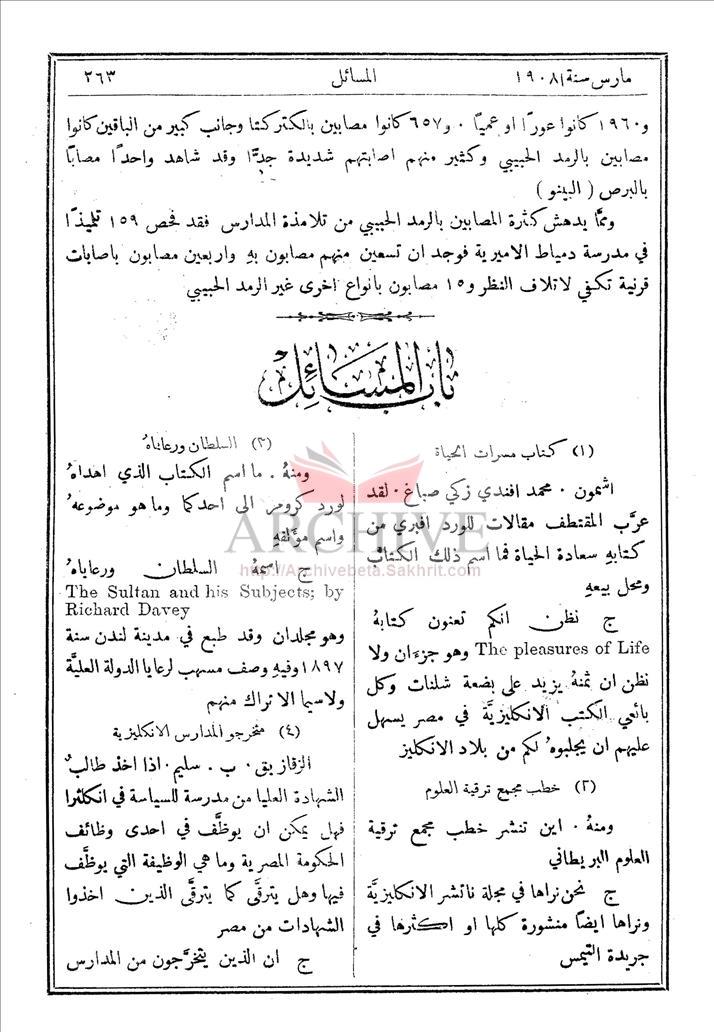 مارس سنة ١٩٠٨
المسائل
٢٦٣
و١٩٦٠ كانوا عورًا او عميًا . و٦٥٧ كانوا مصابين بالكتركتا وجانب كبير من الباقين كانوا
مصابين بالرمد الحبيبي وكثير منهم اصابتهم شديدة جدًّا وقد شاهد واحدًا مصابًا
بالبرص ( البينو )
وممَّا يدهش كثرة المصابين بالرمد الحبيبي من تلامذة المدارس فقد فحص ١٥٩ تلميذًا
في مدرسة دمياط الاميرية فوجد ان تسعين منهم مصابون بهِ واربعين مصابون باصابات
قرنية تكفي لاتلاف النظر و١٥ مصابون بانواع اخرى غير الرمد الحبيبي
باب المسائل
(١) كتاب مسرات الحياة
اشمون . محمد افندي زكي صباغ . لقد
عرَّب المقتطف مقالات للورد افبري من
كتابهِ سعادة الحياة فما اسم ذلك الكتاب
ومحل بيعهِ
ج نظن انكم تعنون كتابهُ
The pleasures of Life وهو جزءان ولا
نظن ان ثمنهُ يزيد على بضعة شلنات وكل
بائعي الكتب الانكليزيَّة في مصر يسهل
عليهم ان يجلبوهُ لكم من بلاد الانكليز
(٢) خطب مجمع ترقية العلوم
ومنهُ . اين تنشر خطب مجمع ترقية
العلوم البريطاني
ج نحن نراها في مجلة ناتشر الانكليزيَّة
ونراها ايضًا منشورة كلها او اكثرها في
جريدة التيمس
(٣) السلطان ورعاياهُ
ومنهُ . ما اسم الكتاب الذي اهداهُ
لورد كرومر الى احدكما وما هو موضوعهُ
واسم مؤلفهِ
ج اسمهُ السلطان ورعاياهُ
The Sultan and his Subjects; by
Richard Davey
وهو مجلدان وقد طبع في مدينة لندن سنة
١٨٩٧ وفيهِ وصف مسهب لرعايا الدولة العليَّة
ولاسيما الاتراك منهم
(٤) متخرجو المدارس الانكليزية
الزقازيق . ب . سليم . اذا اخذ طالبٌ
الشهادة العليا من مدرسة للسياسة في انكلترا
فهل يمكن ان يوظَّف في احدى وظائف
الحكومة المصرية وما هي الوظيفة التي يوظَّف
فيها وهل يترقَّى كما يترقَّى الذين اخذوا
الشهادات من مصر
ج ان الذين يتخرَّجون من المدارس
ARCHIVE
http://Archivebeta.Sakhrit.com